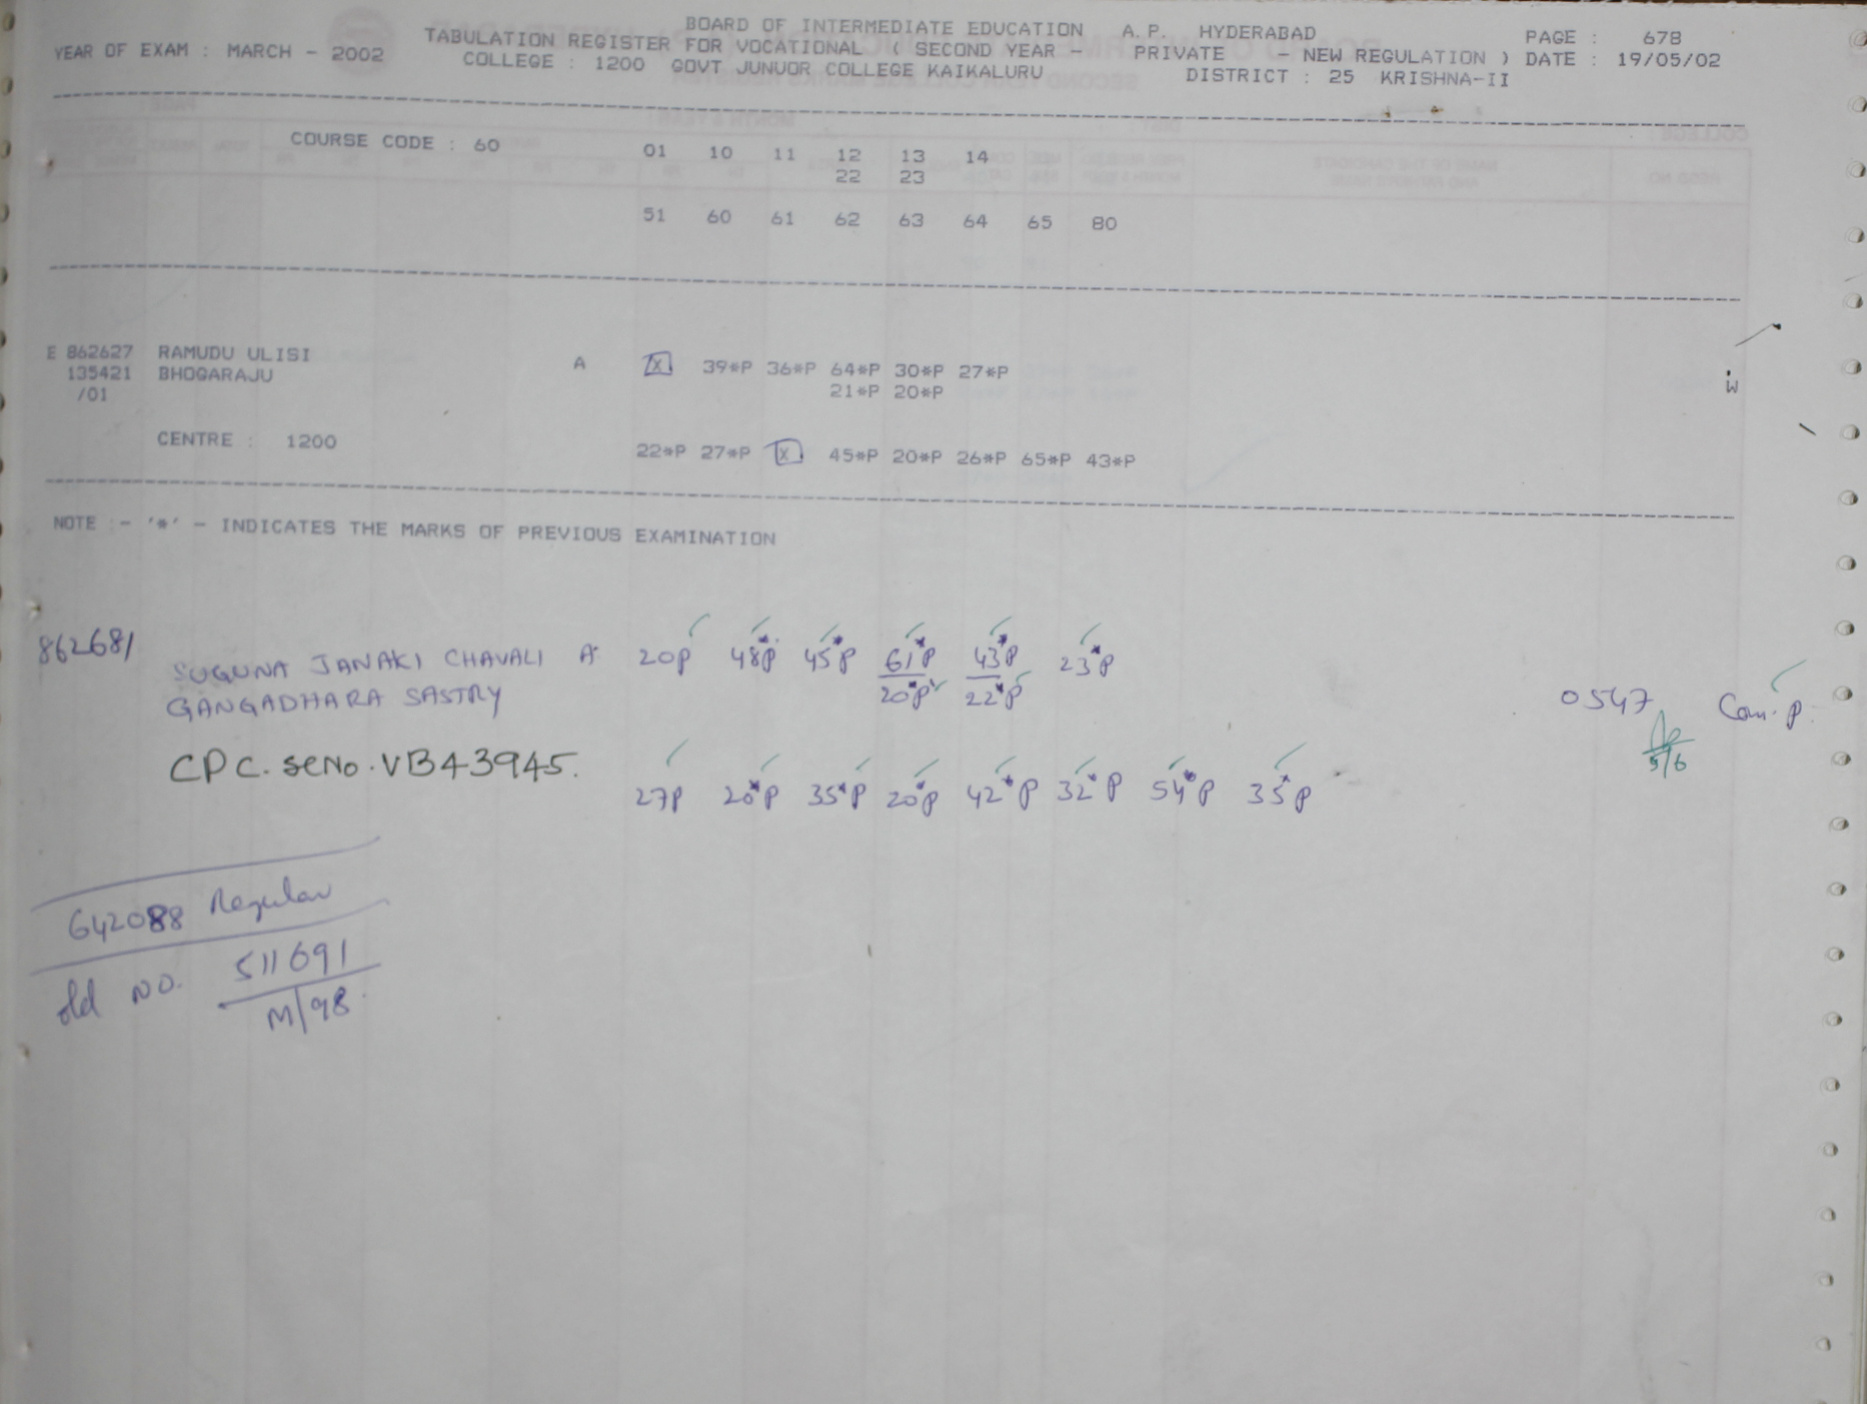 BOARD OF INTERMEDIATE EDUCATION A.P. HYDERABAD PAGE : 678
YEAR OF EXAM : MARCH - 2002 TABULATION REGISTER FOR VOCATIONAL ( SECOND YEAR - PRIVATE - NEW REGULATION ) DATE : 19/05/02
COLLEGE : 1200 GOVT JUNUOR COLLEGE KAIKALURU DISTRICT : 25 KRISHNA-II
COURSE CODE : 60 01 10 11 12 13 14
22 23
51 60 61 62 63 64 65 80
E 862627 RAMUDU ULISI A X 39*P 36*P 64*P 30*P 27*P
135421 BHOGARAJU 21*P 20*P W
/01
CENTRE : 1200 22*P 27*P X 45*P 20*P 26*P 65*P 43*P
NOTE :- '*' - INDICATES THE MARKS OF PREVIOUS EXAMINATION
862681 SUGUNA JANAKI CHAVALI A 20P 48*P 45*P 61*P 43*P 23*P
GANGADHARA SASTRY 20*P 22*P 0547 Com. P.
CPC. SeNo. VB43945. 5/6
27P 20*P 35*P 20*P 42*P 32*P 54*P 35*P
642088 Regular
old NO. 511691
M/98.